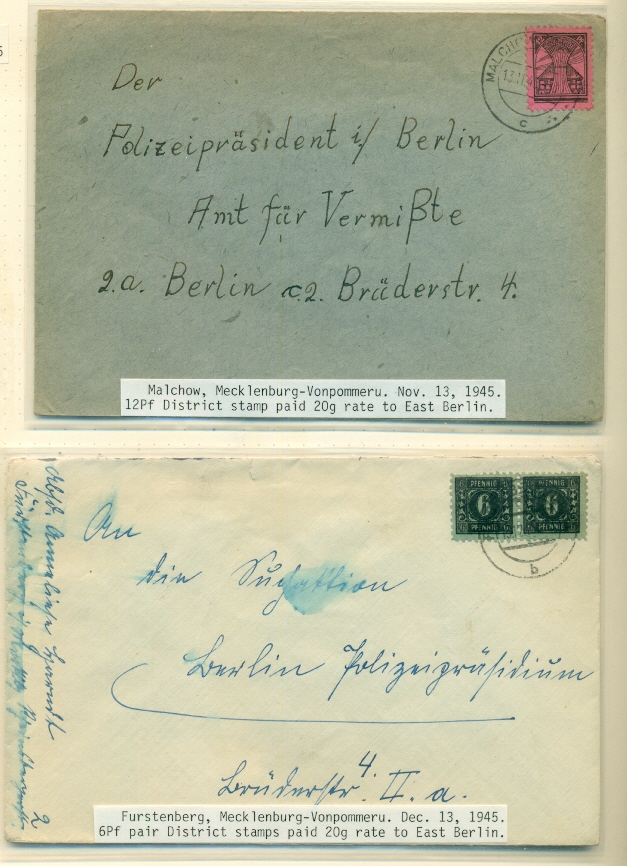 5
Der
Polizeipräsident i/ Berlin
Amt für Vermißte
2.a. Berlin c2. Brüderstr. 4.
MALCHOW
13.11.45
c
Malchow, Mecklenburg-Vonpommeru. Nov. 13, 1945.
12Pf District stamp paid 20g rate to East Berlin.
PFENNIG PFENNIG
6 6
PFENNIG PFENNIG
b
An
die Suchaktion
Berlin Polizeipräsidium
Brüderstr. 4. II. a.
Abs. Annaliese
2
Furstenberg, Mecklenburg-Vonpommeru. Dec. 13, 1945.
6Pf pair District stamps paid 20g rate to East Berlin.